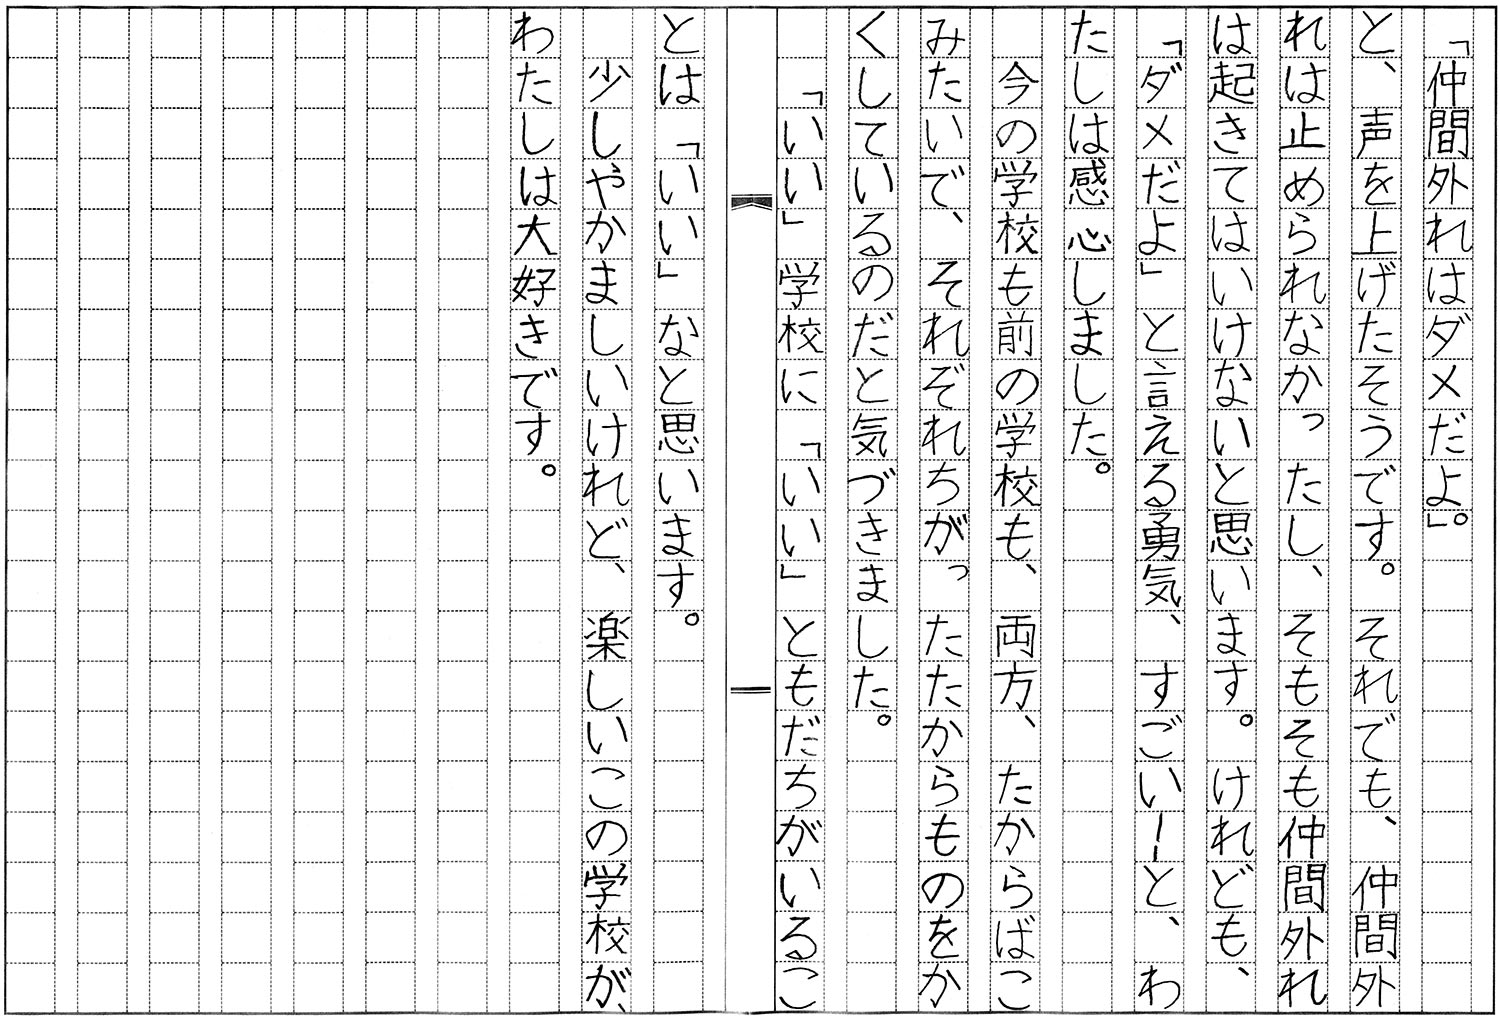 「仲間外れはダメだよ。」
と、声を上げたそうです。それでも、仲間外
れは止められなかったし、そもそも仲間外れ
は起きてはいけないと思います。けれども、
「ダメだよ」と言える勇気、すごい――と、わ
たしは感心しました。
今の学校も前の学校も、両方、たからばこ
みたいで、それぞれちがったたからものをか
くしているのだと気づきました。
「いい」学校に「いい」ともだちがいるこ
とは「いい」なと思います。
少しやかましいけれど、楽しいこの学校が、
わたしは大好きです。